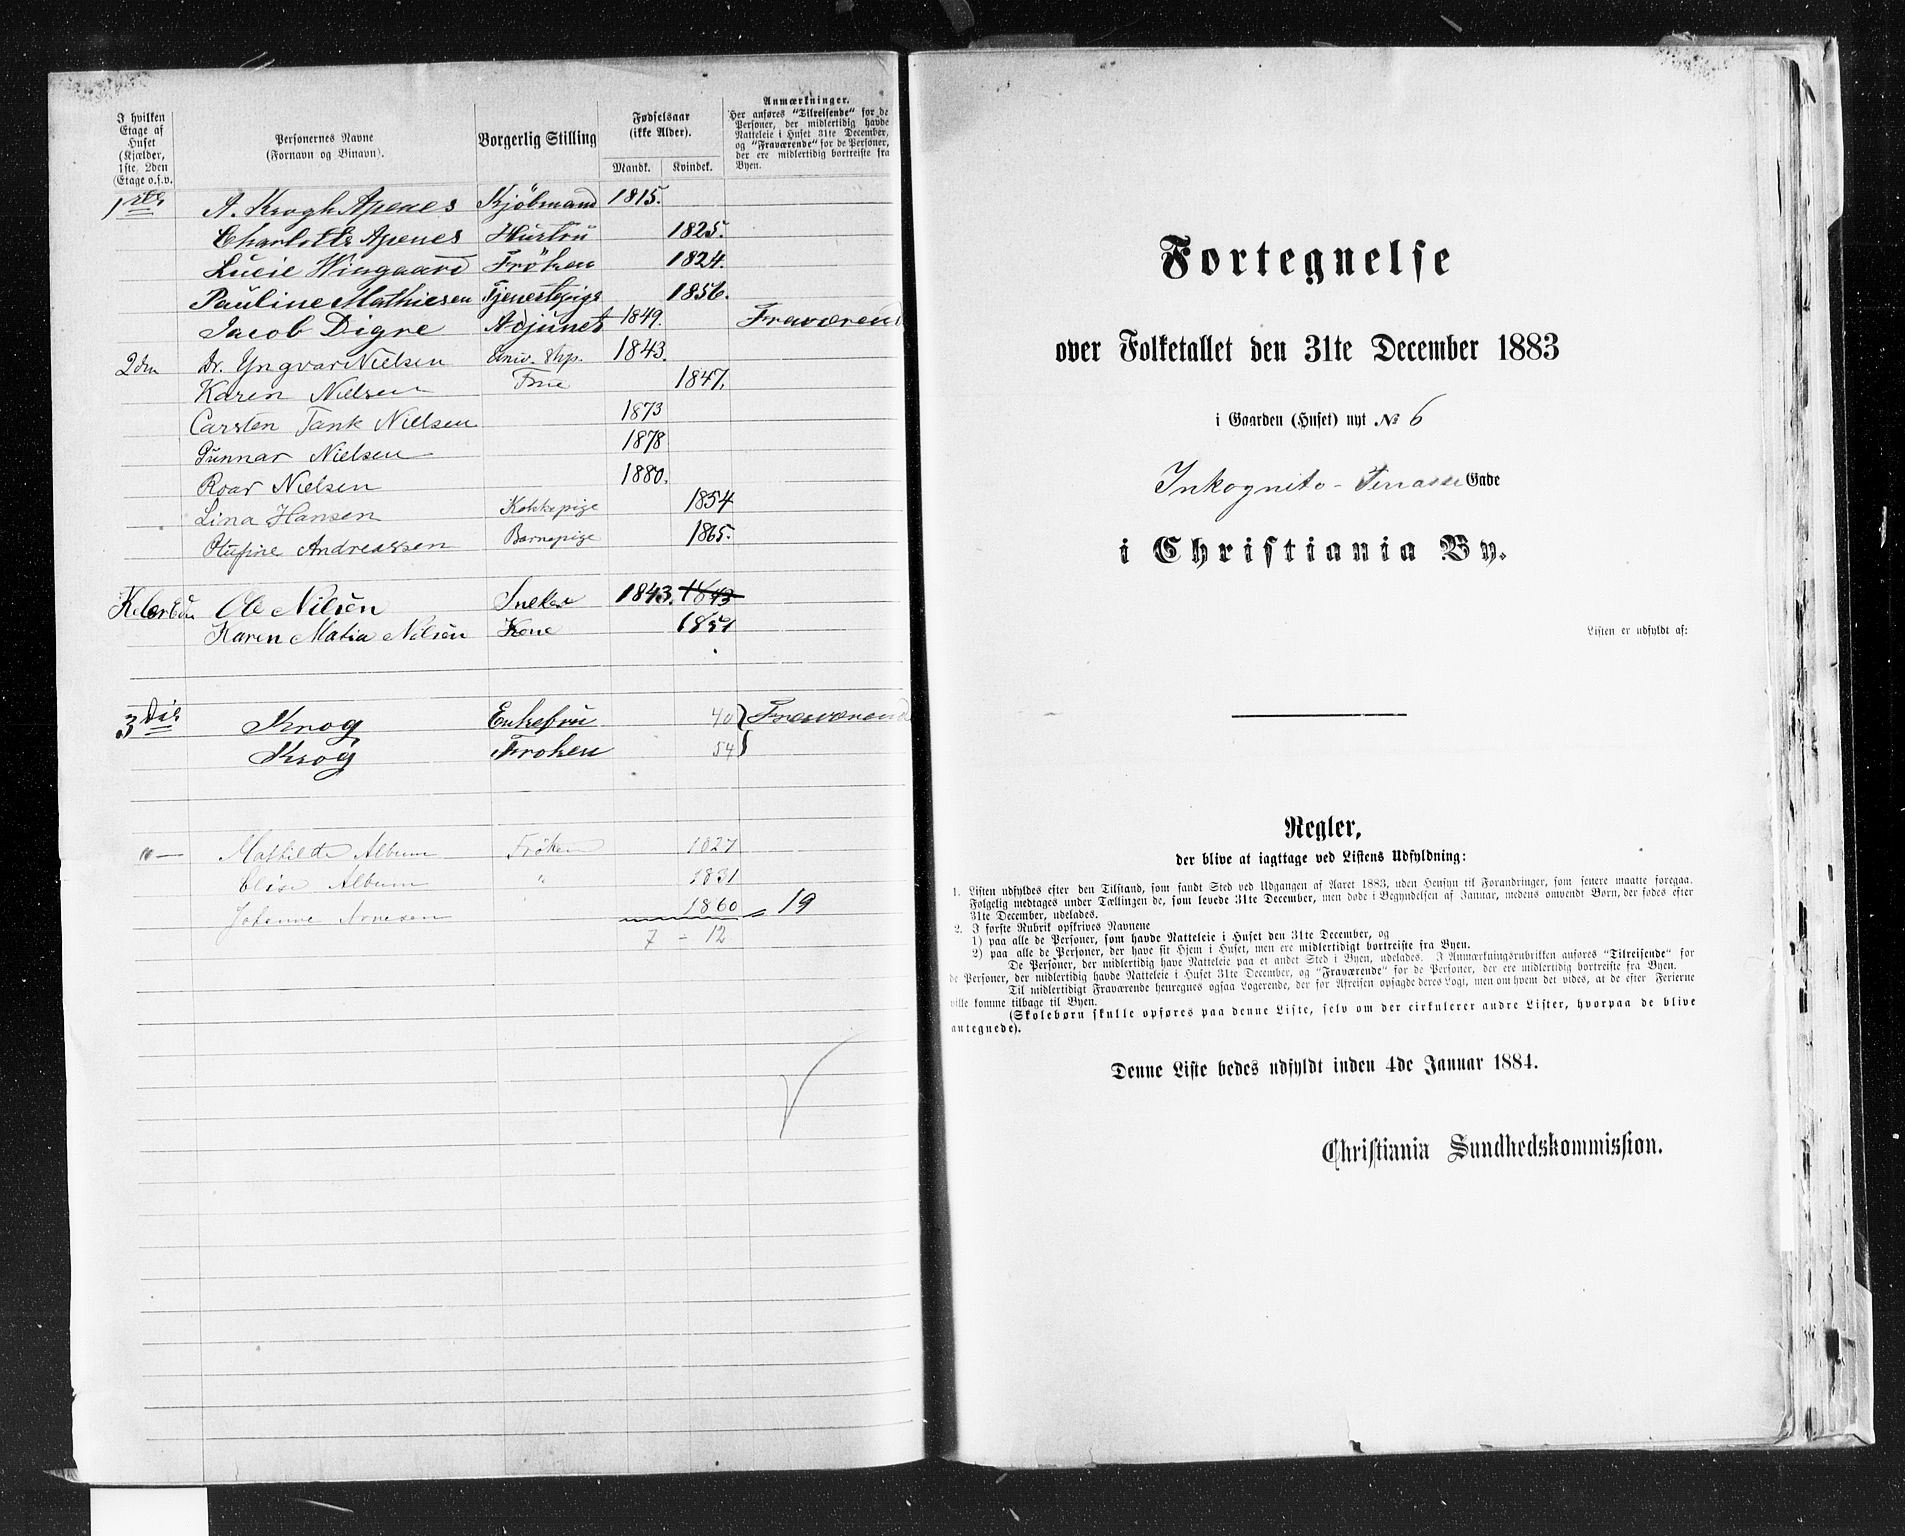 I hvilken Etage af Huset (Kjælder, 1ste, 2den Etage o.s.v.
Personernes Navne (Fornavn og Binavn).
Borgerlig Stilling
Fødselsaar (ikke Alder).
Mandk. Kvindek.
Anmærkninger.
Her anføres "Tilreisende" for de Personer, der midlertidig havde Natteleie i Huset 31te December, og "Fraværende" for de Personer, der ere midlertidig bortreiste fra Byen.
1ste A. Krogh Apenes Kjöbmand 1815.
Charlotte Apenes Hustru 1825.
Lucie Wingaard Fröken 1824.
Pauline Mathiesen Tjenestepige 1856.
Jacob Digre Adjunct 1849. Fraværend
2den Dr. Yngvar Nielsen Univ. Stip. 1843.
Karen Nielsen Frue 1847.
Carsten Tank Nielsen 1873
Gunnar Nielsen 1878
Roar Nielsen 1880.
Lina Hansen Kokkepige 1854
Olufine Andreassen Barnepige 1865.
Ole Nilsen Sneker 1843. 1843
Karen Matia Nilsen Kone 1851
3die Krog Enkefru 40 } Fraværend
Krog Froken 54
" — Mathilde Album Fröken 1827
Elise Album " 1831
Johanne Arnesen 1860 = 19
7 - 12
Fortegnelse
over Folketallet den 31te December 1883
i Gaarden (Huset) nyt No 6
Inkognito-Terrasse Gade
i Christiania By.
Listen er udfyldt af:
Regler,
der blive at iagttage ved Listens Udfyldning:
1. Listen udfyldes efter den Tilstand, som fandt Sted ved Udgangen af Aaret 1883, uden Hensyn til Forandringer, som senere maatte foregaa.
Følgelig medtages under Tællingen de, som levede 31te December, men døde i Begyndelsen af Januar, medens omvendt Børn, der fødes efter
31te December, udelades.
2. I første Rubrik opskrives Navnene
1) paa alle de Personer, som havde Natteleie i Huset den 31te December, og
2) paa alle de Personer, der have sit Hjem i Huset, men ere midlertidigt bortreiste fra Byen.
De Personer, der midlertidig have Natteleie paa et andet Sted i Byen, udelades. I Anmærkningsrubriken anføres "Tilreisende" for
de Personer, der midlertidig havde Natteleie i Huset 31te December, og "Fraværende" for de Personer, der ere midlertidig bortreiste fra Byen.
Til midlertidigt Fraværende henregnes ogsaa Logerende, der før Afreisen opsagde deres Logi, men om hvem det vides, at de efter Ferierne
ville komme tilbage til Byen.
(Skolebørn skulle opføres paa denne Liste, selv om der cirkulerer andre Lister, hvorpaa de blive
antegnede).
Denne Liste bedes udfyldt inden 4de Januar 1884.
Christiania Sundhedskommission.